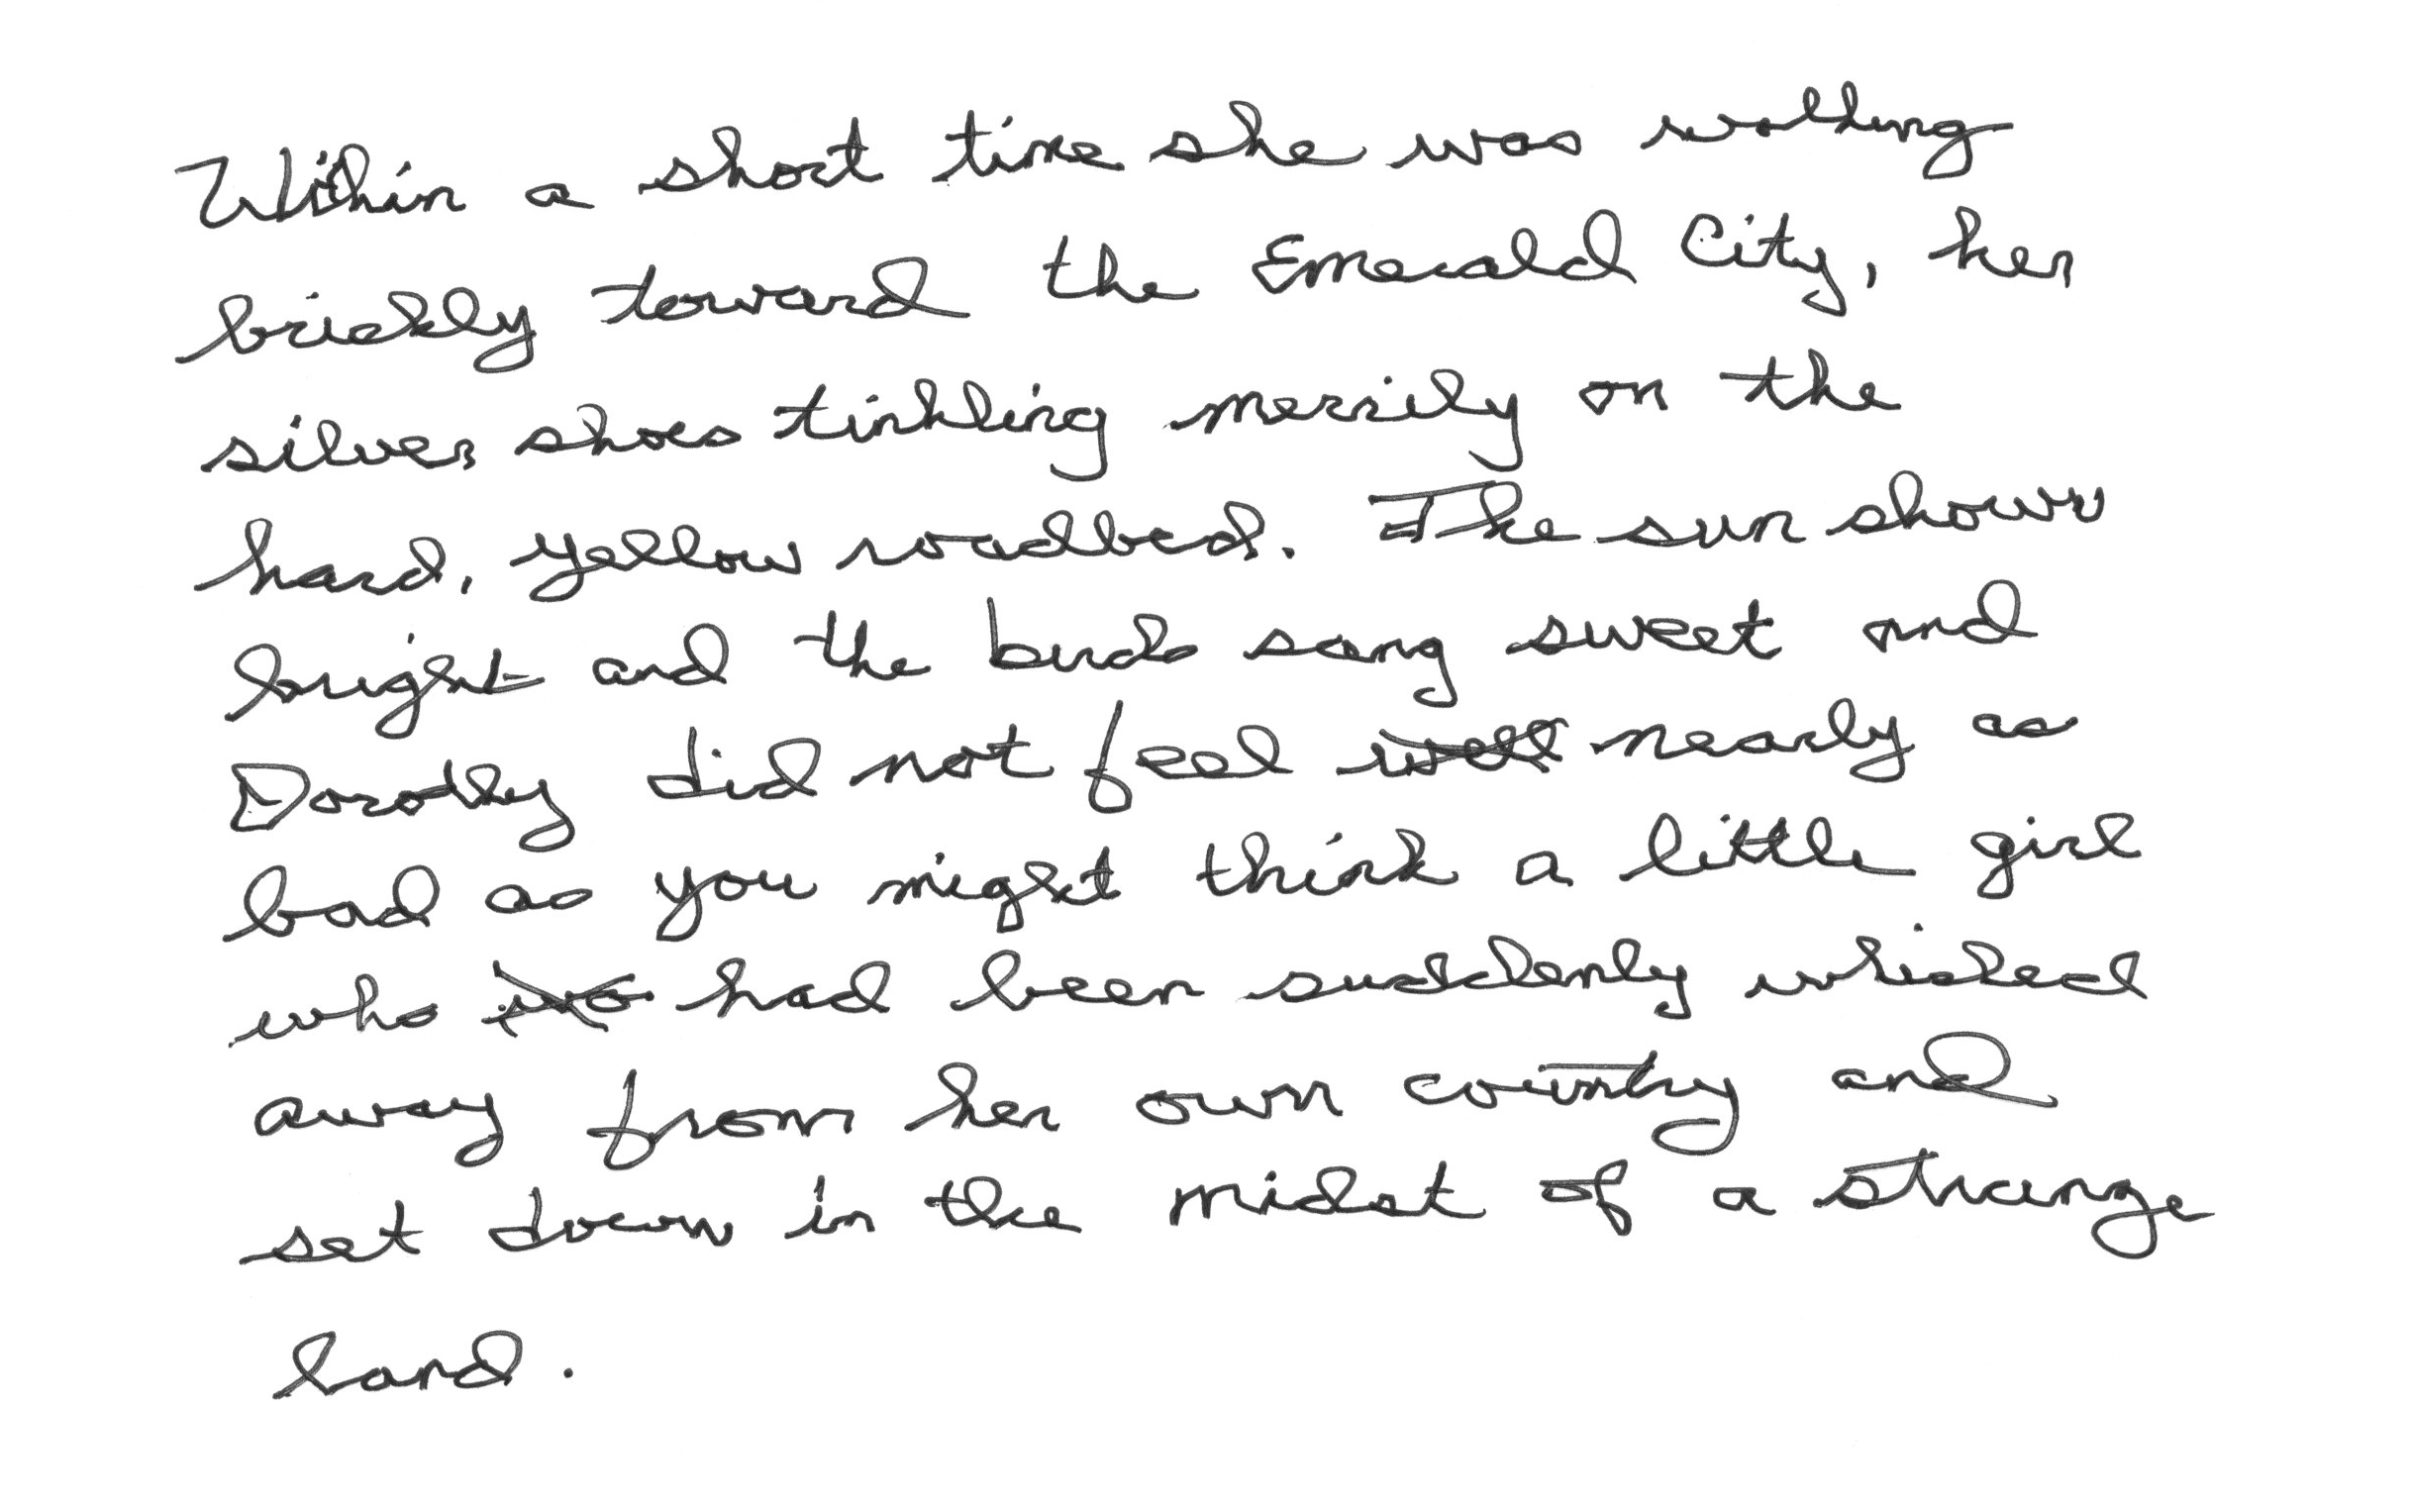 Within a short time she was walking
brickly toward the Emerald City, her
silver shoes tinkling merrily on the
hard, yellow roadbed. The sun shown
bright and the birds sang sweet and
Dorothy did not feel well nearly as
bad as you might think a little girl
who had been suddenly whisked
away from her own country and
set down in the midst of a strange
land.